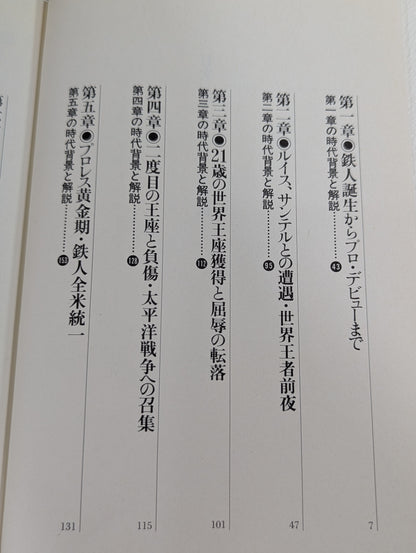 第一章●鉄人誕生からプロ・デビューまで 7
第一章の時代背景と解説………43
第二章●ルイス、サンテルとの遭遇・世界王者前夜 47
第二章の時代背景と解説………95
第三章●21歳の世界王座獲得と屈辱の転落 101
第三章の時代背景と解説………112
第四章●二度目の王座と負傷・太平洋戦争への召集 115
第四章の時代背景と解説………128
第五章●プロレス黄金期・鉄人全米統一 131
第五章の時代背景と解説………153